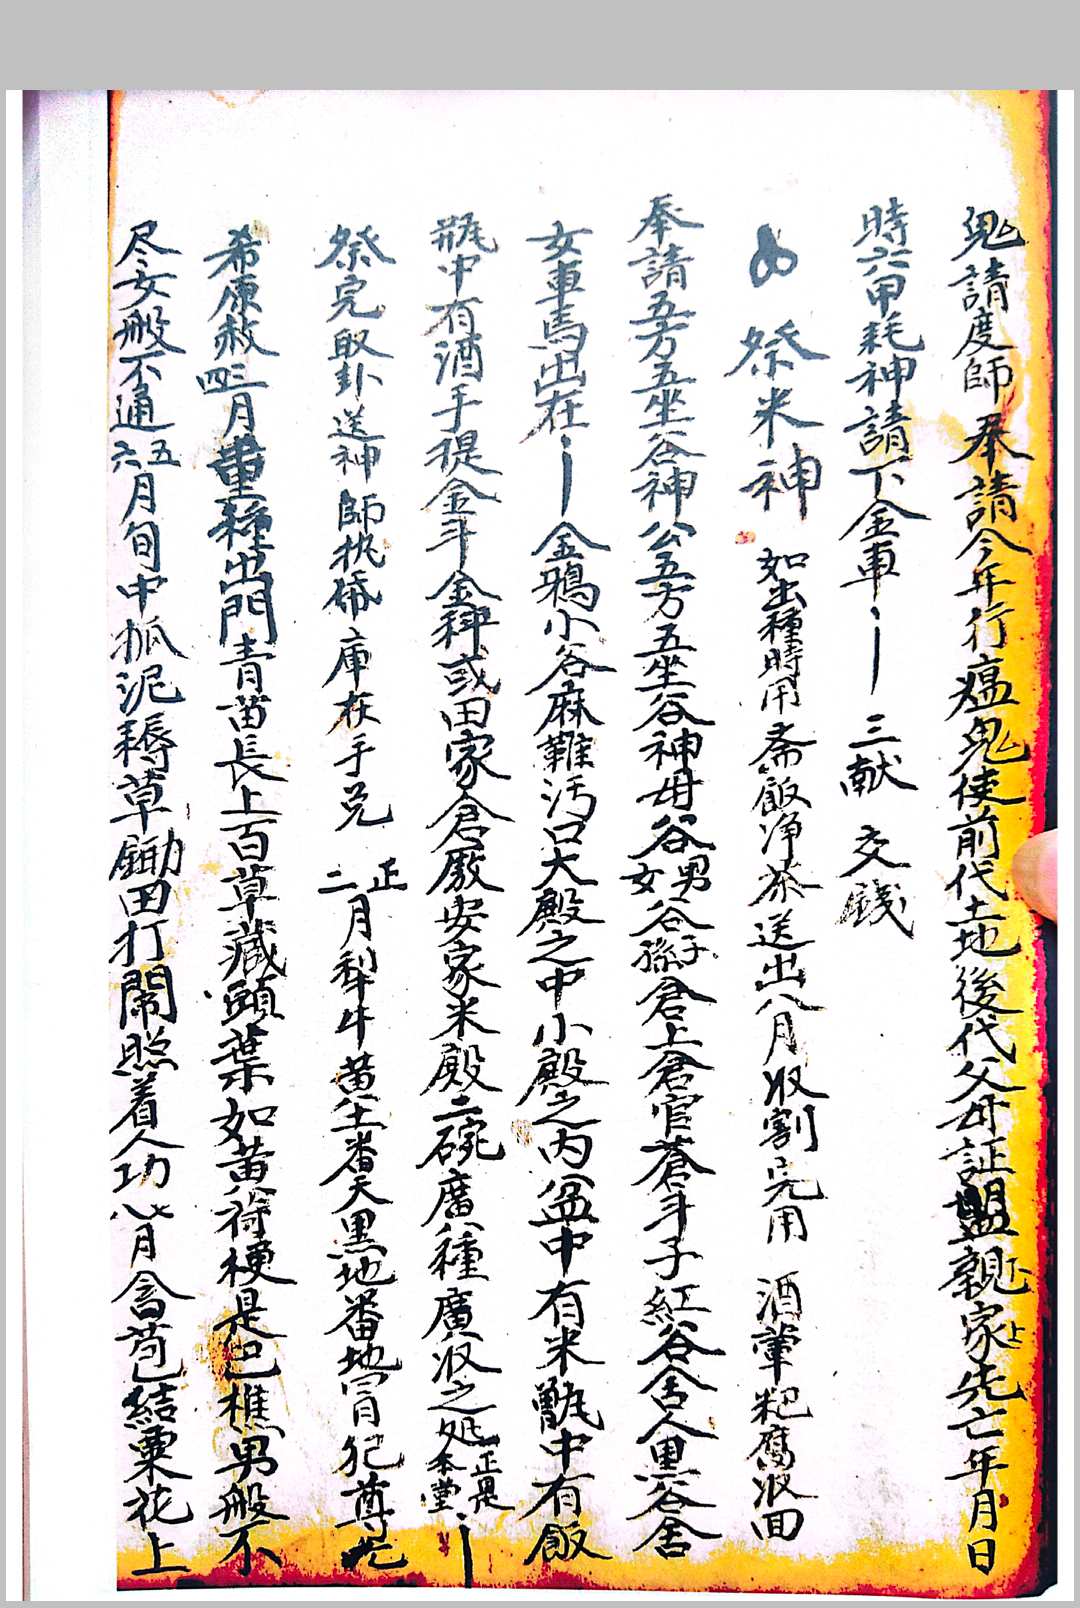 鬼請度師奉請今年行瘟鬼使前代土地後代父母証盟親家先亡年月日
時六甲耗神請下金車 三献 交錢
祭米神 如出種時用斋飯净茶送出八月收割完用 酒葷粑腐收回
奉請五方五坐谷神公五方五坐谷神母谷男女谷子孫倉上倉官蒼斗子紅谷舍人黑谷舍
女車馬出在 金鴉小谷麻難汚口大殿之中小殿之内盆中有米甑中有飯
瓶中有酒手提金斗金秤或田家倉厫安家米殿二碗廣種廣收之处正是本堂
祭完取卦送神師执倉庫在手兑 正二月犁牛黄土番天黑地番地冒犯尊先
希原赦三四月重種出門青苗長上百草藏頭葉如黄符梗是巴樵男般不
尽女般不通五六月旬中抓泥耨草鋤田打鬧照着人功七八月含苞結粟花上